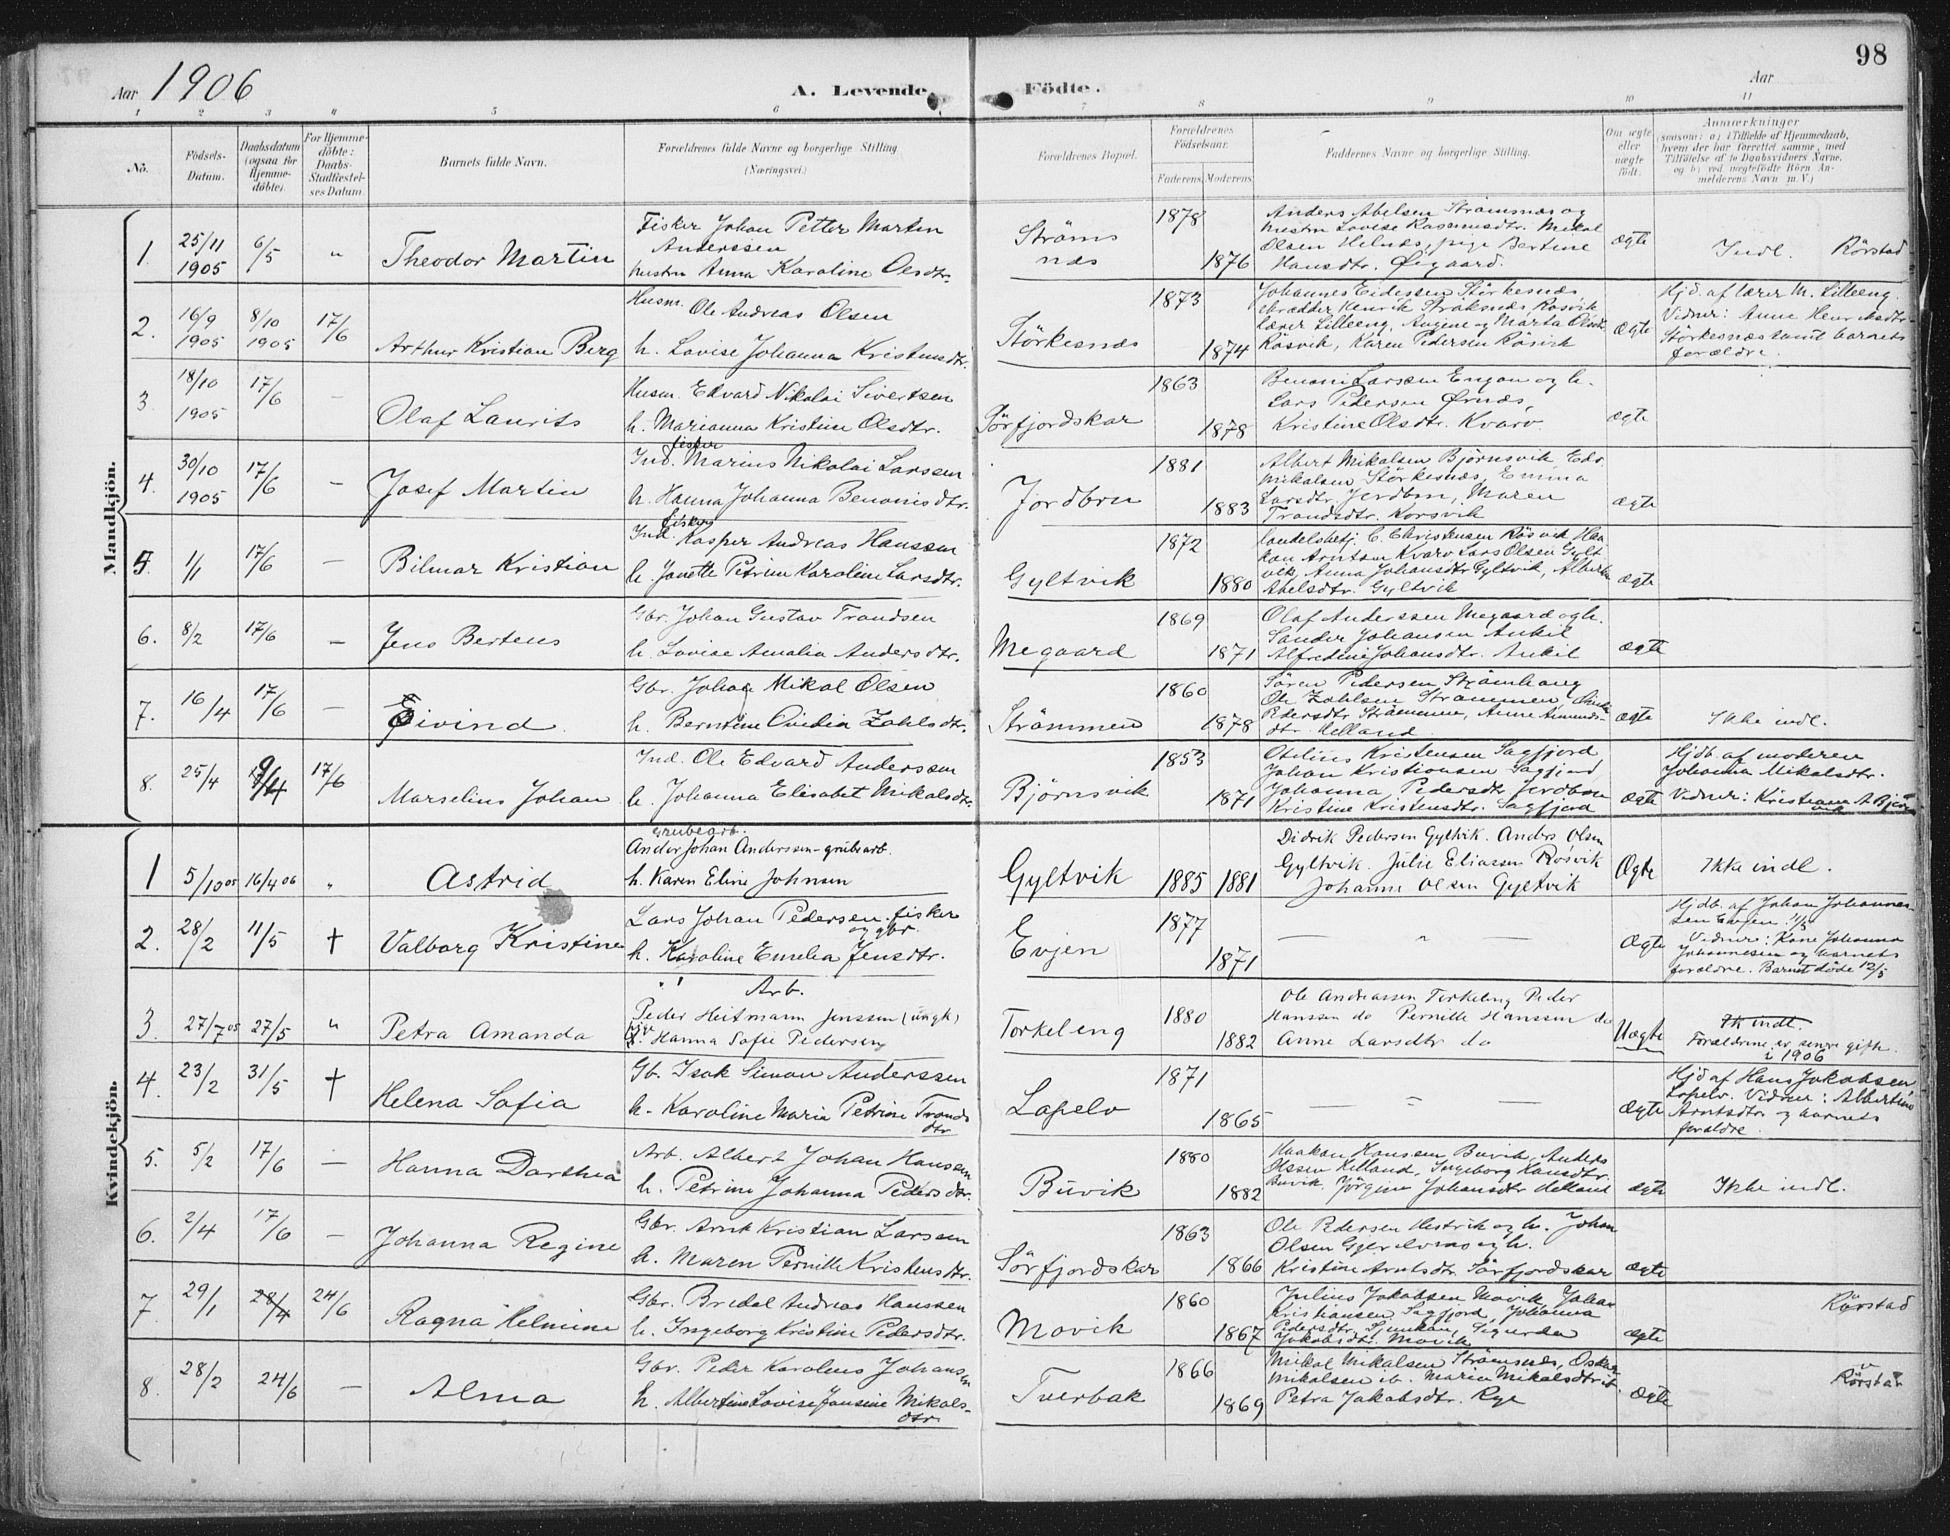 98
Aar 1906
A. Levende Födte.
Aar
1 2 3 4 5 6 7 8 9 10 11
No.
Födsels-Datum.
Daabsdatum (ogsaa for Hjemme-döbte).
For Hjemme-döbte: Daabs-Stadfæstel-ses Datum
Barnets fulde Navn.
Forældrenes fulde Navne og borgerlige Stilling (Næringsvei.)
Forældrenes Bopæl.
Forældrenes Födselsaar.
Faderens Moderens
Faddernes Navne og borgerlige Stilling.
Om ægte eller uægte födt.
Anmærkninger
(saasom: a) i Tilfælde af Hjemmedaab, hvem der har forrettet samme, med Tilföielse af to Daabsvidners Navne, og b) ved uægtefödte Börn An-melderens Navn m. V.)
Mandkjön.
1. 25/11 1905 6/5 " Theodor Martin
Fisker Johan Petter Martin Anderssen
hustru Anna Karoline Olsdtr.
Ströms næs 1878 1876
Anders Abelsen Strömsnæs og
hustru Lovise Rasmusdtr. Mikal
Olsen Helnæs, pige Bertine
Hansdtr. Øigaard.
ægte Indl. Rörstad
2. 16/9 1905 8/10 1905 17/6 Arthur Kristian Berg
Husm. Ole Andreas Olsen
h. Lovise Johanna Kristensdtr.
Störkesnæs 1873 1874
Johannes Eidessen Störkesnæs
Henrik Straksnæs, Rösvik
lærer Lilleeng, Augene og Marta Olsdtr.
Rösvik, Karen Pedersen Rösvik
ægte
Hjd. af lærer M. Lilleeng.
Vidner: Anne Henriksdtr.
Störkesnæs samt barnets
forældre.
3 18/10 1905 17/6 – Olaf Laurits
Husm. Edvard Nikolai Sivertsen
h. Marianna Kristine Olsdtr.
Sörfjordskar 1863 1878
Benoni Larssen Engan og h.
Lars Pedersen Ørnes,
Kristine Olsdtr. Kvarv
ægte
4. 30/10 1905 17/6 – Josef Martin
Ind. fisker Marius Nikolai Larssen
h. Hanna Johanna Benonisdtr.
Jordbru 1881 1883
Albert Mikalsen Björnsvik, Edv.
Mikalsen Störkesnæs, Emma
Larsdtr. Jordbru, Maren
Trondsdtr. Korsvik
ægte
5. 1/1 17/6 – Bilmar Kristian
Ind. fisker Kasper Andreas Hanssen
h. Janette Petrine Karoline Larsdtr.
Gyltvik 1872 1880
handelsbetj. C. Christensen Rösvik Haa-
kon Arntsen Kvarv Lars Olsen Gylt
vik, Anna Johansdtr Gyltvik, Alberta
Abelsdtr. Gyltvik
ægte
6. 8/2 17/6 – Jens Berteus
Gbr. Johan Gustav Trondsen
h. Lovise Amalia Andersdtr.
Megaard 1869 1871
Olaf Anderssen Megaard og h.
Sander Johansen Ankil
Alfredine Johansdtr. Ankil
ægte
7. 16/4 17/6 – Eivind
Gbr. Johan Mikal Olsen
h. Berntine Ovidia Zahlsdtr.
Strömmen 1860 1878
Sören Pedersen Strömhaug
Ole Zahlsen Strömmen
Pedersdtr Strömmen, Anne Amunds-
dtr. Helland
ægte Ikke indl.
8. 25/4 9/4 17/6 Marselius Johan
Ind. Ole Edvard Anderssen
h. Johanna Elisabet Mikalsdtr.
Björnsvik 1853 1871
Otelius Kristensen Sagfjord
Johan Kristiansen Sagfjord
Johanna Pedersdtr Jordbru
Kristine Kristensdtr. Sagfjord
ægte
Hjdb. af moderen
Johanna Mikalsdtr.
Vidner: Kristiane A. Björnsvik
Kvindekjön.
1 5/10 05 16/4 06 " Astrid
grubearb.
Ander Johan Anderssen – grubearb.
h. Karen Eline Johnsen
Gyltvik 1885 1881
Didrik Pedersen Gyltvik. Anders Olsen
Gyltvik. Julie Eliassen Rosvik
Johanne Olsen Gyltvik
Ægte Ikke indl.
2. 28/2 11/5 † Valborg Kristine
Lars Johan Pedersen fisker og gbr.
h. Karoline Emelia Jensdtr.
Evjen 1877 1871
– " –
Ægte
Hjdb. af Johan Johannes-
sen Evjen 11/5
Vidner: Kone Johanna
Johannesen og barnets
forældre. Barnet döde 12/5
3 27/7 05 27/5 " Petra Amanda
Arb.
Peder Heitmann Jenssen (ungk)
pige Hanna Sofie Pedersen
Torkeleng 1880 1882
Ole Andreassen Torkeleng Peder
Hanssen do Pernille Hanssen do
Anne Larsdtr do
Uægte
Ik indl.
Forældrene er senere gift
i 1906
4. 23/2 31/5 † Helena Sofia
Gb. Isak Simon Anderssen
h. Karoline Maria Petrine Tronds dtr
Lapelv 1871 1865
– " –
ægte
Hjd af Hans Jakobsen
Lapelv. Vidner: Albertine
Arntsdtr og barnets
forældre.
5. 5/2 17/6 – Hanna Dorthea
Arb. Albert Johan Hansen
h. Petrine Johanna Pedersdtr.
Buvik 1880 1882
Haakon Hanssen Buvik, Anders
Olssen Helland, Ingeborg Hansdtr.
Buvik. Jörgine Johansdtr Helland
ægte Ikke indl.
6. 2/4 17/6 – Johanna Regine
Gbr. Arnt Kristian Larssen
h. Maren Pernille Kristensdtr.
Sörfjordskar 1863 1866
Ole Pedersen Hestvik og h. Johan
Olsen og h.
Kristine Arntsdtr. Sörfjordskar
ægte
7 29/1 28/4 24/6 Ragna Helmine
Gbr. Bredal Andreas Hanssen
h. Ingeborg Kristine Pedersdtr.
Movik 1860 1867
Julius Jakobsen Movik Johan
Kristiansen Sagfjord, Johanna
Pedersdtr. Sjunkan, Sigurda
Jakobsdtr. Movik
ægte Rörstad
8. 28/2 24/6 – Alma
Gbr. Peder Karolius Johansen
h. Albertine Lovise Jonsine Mikals-dtr
Tverbak 1866 1869
Mikal Mikalsen Strömsnæs, Oskar
Mikalsen ib. Maria Mikalsdtr ib.
Petra Jakobsdtr. Rye
Ægte Rörstad